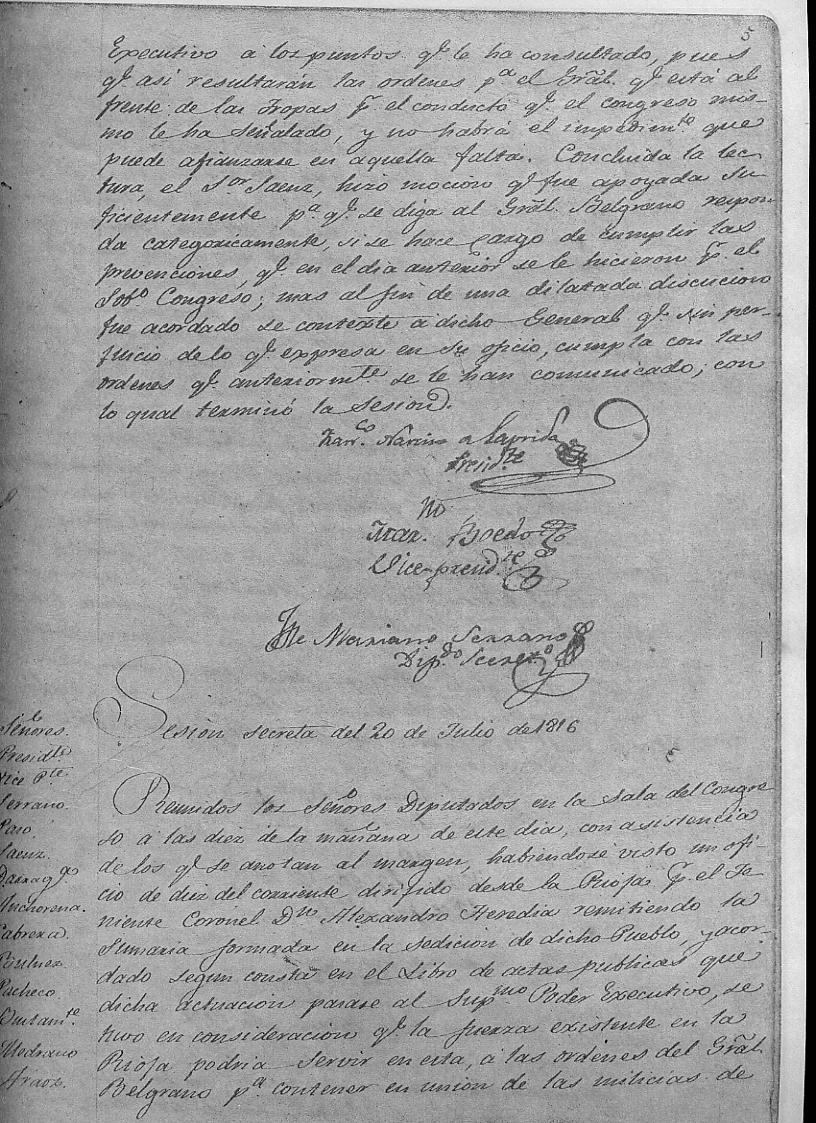 5
Executivo á los puntos q.e le ha consultado, pues
q.e así resultarán las ordenes p.a el Grâl. q.e está al
frente de las Tropas p.r el conducto q.e el congreso mis-
mo le ha señalado, y no habrá el impedim.to que
puede afianzarse en aquella falta. Concluida la lec-
tura, el S.or Saenz, hizo mocion q.e fue apoyada su
ficientemente p.a q.e se diga al Grâl. Belgrano respon-
da categoricamente, si se hace cargo de cumplir las
prevenciones, q.e en el dia anterior se le hicieron p.r el
Sob.o Congreso; mas al fin de una dilatada discucion
fue acordado se contexte á dicho General q.e sin per-
juicio de lo q.e expresa en su oficio, cumpla con las
ordenes q.e anteriorm.te se le han comunicado; con
lo qual terminó la Sesion.
Fran.co Narciso de Laprida
Presid.te
Mar.no Boedo
Vice-presid.te
J.e Mariano Serrano
Dip.do Secret.o
Sesion secreta del 20 de Julio de 1816
Señores.
Presid.te
Vice P.te
Serrano.
Paso.
Saenz.
Darrag.a
Anchorena.
Cabrera.
Pacheco.
Bustam.te
Medrano
Araoz.
Reunidos los Señores Diputados en la Sala del Congre
so á las diez de la mañana de este dia, con asistencia
de los q.e se anotan al margen, habiendose visto un ofi-
cio de diez del corriente dirijido desde la Rioja p.r el Te
niente Coronel D.n Alexandro Heredia remitiendo la
Sumaria formada en la sedicion de dicho Pueblo, y acor-
dado segun consta en el Libro de actas publicas que
dicha actuacion pasase al Sup.mo Poder Executivo, se
tuvo en consideracion q.e la fuerza existente en la
Rioja podria servir en esta, á las ordenes del Grâl.
Belgrano p.a contener en union de las milicias de